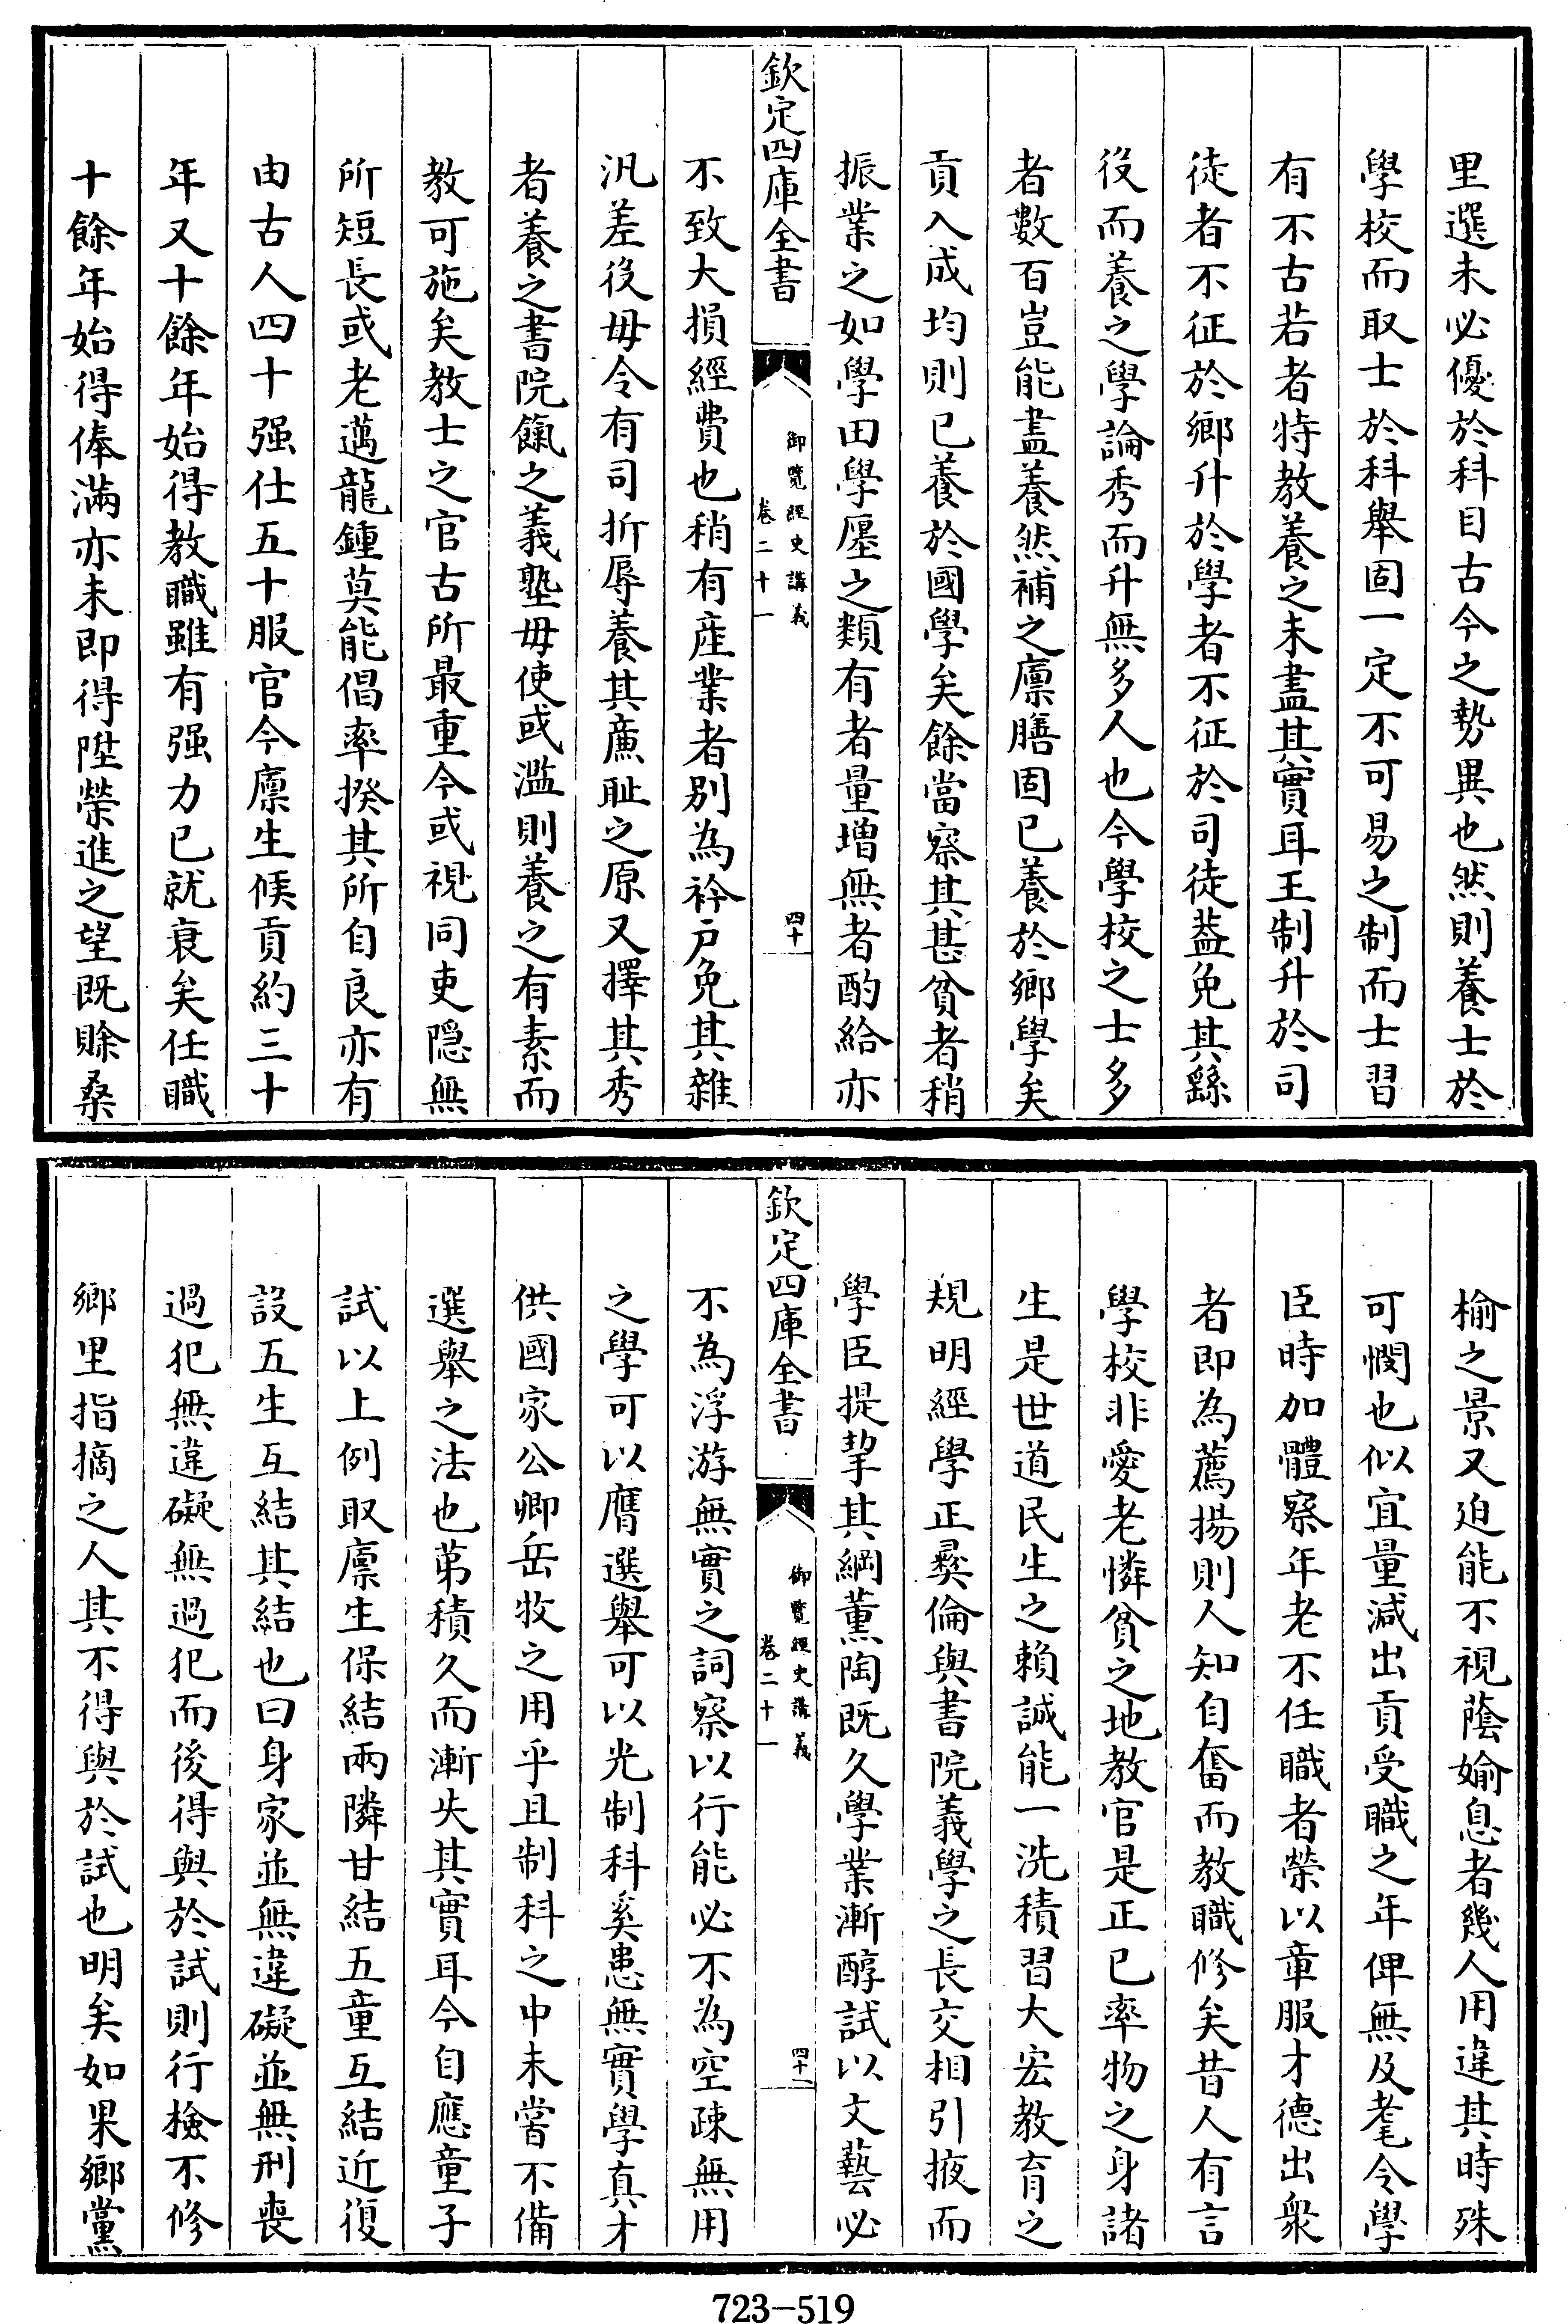 里選未必優於科目古今之勢異也然則養士於
學校而取士於科舉固一定不可易之制而士習
有不古若者特教養之未盡其實耳王制升於司
徒者不征於鄉升於學者不征於司徒葢免其繇
役而養之學論秀而升無多人也今學校之士多
者數百豈能盡養然補之廪膳固已養於鄉學矣
貢入成均則已養於國學矣餘當察其甚貧者稍
振業之如學田學廛之類有者量增無者酌給亦
欽定四庫全書
御覽經史講義
卷二十一
四十
不致大損經費也稍有産業者别為衿戶免其雜
汎差役毋令有司折辱養其亷耻之原又擇其秀
者養之書院餼之義塾毋使或濫則養之有素而
教可施矣教士之官古所最重今或視同吏隠無
所短長或老邁龍鍾莫能倡率揆其所自良亦有
由古人四十强仕五十服官今廪生候貢約三十
年又十餘年始得教職雖有强力已就衰矣任職
十餘年始得俸滿亦未即得陞榮進之望既賒桑
榆之景又迫能不視蔭媮息者幾人用違其時殊
可憫也似宜量減出貢受職之年俾無及耄令學
臣時加體察年老不任職者榮以章服才德出衆
者即為薦揚則人知自奮而教職修矣昔人有言
學校非愛老憐貧之地教官是正已率物之身諸
生是世道民生之賴誠能一洗積習大宏教育之
規明經學正彜倫與書院義學之長交相引掖而
學臣提挈其綱薰陶既久學業漸醇試以文藝必
欽定四庫全書
御覽經史講義
卷二十一
四十一
不為浮游無實之詞察以行能必不為空疎無用
之學可以膺選舉可以光制科奚患無實學真才
供國家公卿岳牧之用乎且制科之中未嘗不備
選舉之法也苐積久而漸失其實耳今自應童子
試以上例取廪生保結兩隣甘結五童互結近復
設五生互結其結也曰身家並無違礙並無刑喪
過犯無違礙無過犯而後得與於試則行檢不修
鄉里指摘之人其不得與於試也明矣如果鄉黨
723-519